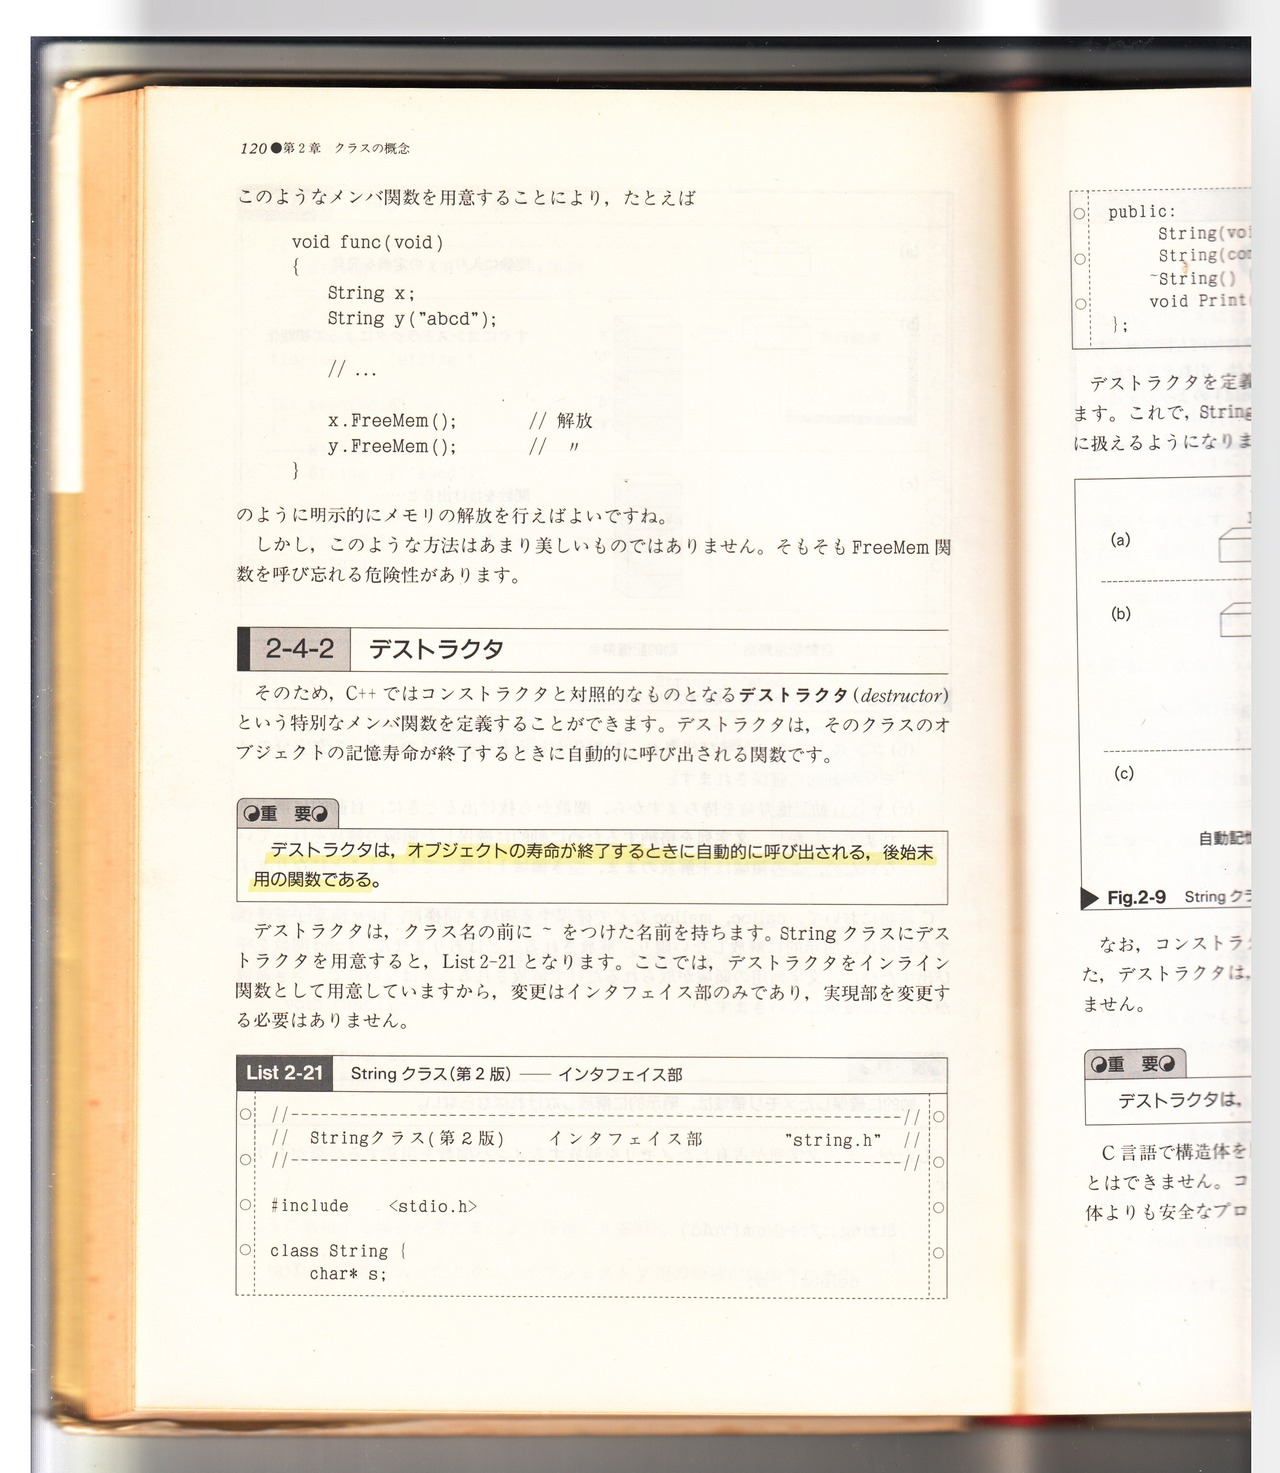 120●第2章　クラスの概念
このようなメンバ関数を用意することにより，たとえば
void func(void)
{
String x;
String y("abcd");
// ...
x.FreeMem();　　// 解放
y.FreeMem();　　// 〃
}
のように明示的にメモリの解放を行えばよいですね。
しかし，このような方法はあまり美しいものではありません。そもそも FreeMem 関
数を呼び忘れる危険性があります。
2-4-2　デストラクタ
そのため，C++ ではコンストラクタと対照的なものとなるデストラクタ(destructor)
という特別なメンバ関数を定義することができます。デストラクタは，そのクラスのオ
ブジェクトの記憶寿命が終了するときに自動的に呼び出される関数です。
重　要
デストラクタは，オブジェクトの寿命が終了するときに自動的に呼び出される，後始末
用の関数である。
デストラクタは，クラス名の前に ~ をつけた名前を持ちます。String クラスにデス
トラクタを用意すると，List 2-21 となります。ここでは，デストラクタをインライン
関数として用意していますから，変更はインタフェイス部のみであり，実現部を変更す
る必要はありません。
List 2-21　String クラス(第 2 版) ―― インタフェイス部
//----------------------------------------------------------------//
//　Stringクラス(第 2 版)　　インタフェイス部　　"string.h"　//
//----------------------------------------------------------------//
#include　<stdio.h>
class String {
char* s;
public:
String(voi
String(con
~String()
void Print(
};
デストラクタを定義
ます。これで，String
に扱えるようになりま
(a)
(b)
(c)
自動記憶
Fig.2-9　String クラ
なお，コンストラク
た，デストラクタは，
ません。
重　要
デストラクタは，
C 言語で構造体を
とはできません。コ
体よりも安全なプロ